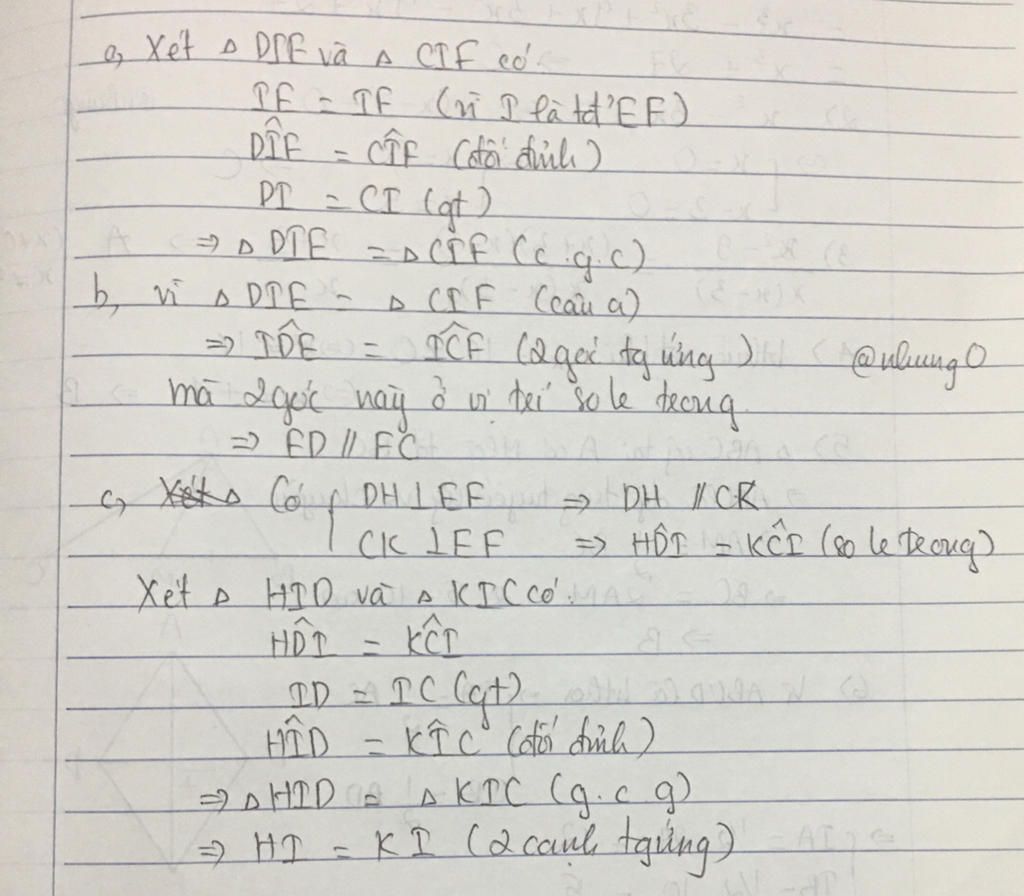 a, Xét Δ DIE và Δ CIF có:
IE = IF (vì I là tđ' EF)
DÎE = CÎF (đối đỉnh)
DI = CI (gt)
⇒ Δ DIE = Δ CIF (c.g.c)
b, vì Δ DIE = Δ CIF (câu a)
⇒ ID̂E = IĈF (2 góc tg ứng) @nhung0
mà 2 góc này ở vị trí so le trong
⇒ ED // FC
c, Có { DH ⊥ EF ⇒ DH // CK
CK ⊥ EF ⇒ HD̂I = KĈI (so le trong)
Xét Δ HID và Δ KIC có:
HD̂I = KĈI
ID = IC (gt)
HÎD = KÎC (đối đỉnh)
⇒ Δ HID = Δ KIC (g.c.g)
⇒ HI = KI (2 cạnh tg ứng)